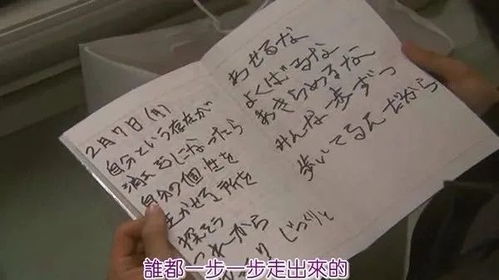 2月7日(月)
自分という存在が
消えそうになったら
自分の個性を
生かせる所を
探そう
これから
じっくりと
あせるな
よくばるな
あきらめるな
みんな一歩ずつ
歩いてるんだから
誰都一步一步走出來的